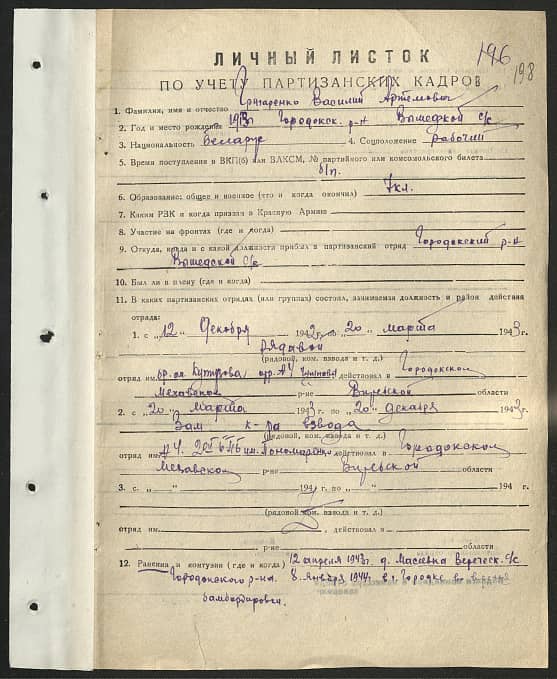 196
198
ЛИЧНЫЙ ЛИСТОК
ПО УЧЕТУ ПАРТИЗАНСКИХ КАДРОВ
1. Фамилия, имя и отчество Григаренко Василий Артемович
2. Год и место рождения Городокск. р-н с/с
3. Национальность Беларус 4. Соцположение рабочий
5. Время поступления в ВКП(б) или ВЛКСМ, № партийного или комсомольского билета
б/п.
6. Образование: общее и военное (что и когда окончил) 7кл.
7. Каким РВК и когда призван в Красную Армию
8. Участие на фронтах (где и когда)
9. Откуда, когда и с какой должности прибыл в партизанский отряд Городокский р-н
с/с
10. Был ли в плену (где и когда)
11. В каких партизанских отрядах (или группах) состоял, занимаемая должность и район действия
отряда:
1. с „12„ Декабря 1942г. по „20„ марта 1943г.
рядовой
(рядовой, ком. взвода и т. д.)
отряд им. бр. им. Кутузова отр. №4 действовал в Городокском
Меховском р-не области
2. с „20„ марта 1943г. по „20„ декабря 1943г.
Зам к-ра взвода
(рядовой, ком. взвода и т. д.)
отряд им. №4 им. Пономаренко действовал в Городокском
Меховском р-не области
3. с „ „ 194 г. по „ „ 194 г.
(рядовой, ком. взвода и т. д.)
отряд им. , действовал в
р-не области
12. Ранения и контузии (где и когда) 12 апреля 1943г. д. с/с
Городокского р-на. 8 января 1944г. в г. Городке во время
бамбардировки.